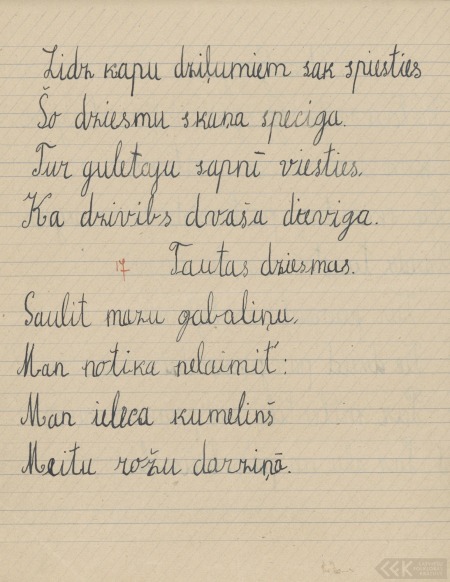 Lidz kapu dziļumiem sak spiesties
Šo dziesmu skana speciga.
Tur guletaju sapnī viesties,
Ka dzivibs dvaša dieviga.
17 Tautas dziesmas.
Saulit mazu gabaliņu,
Man notika nelaimit':
Man ieleca kumelinš
Meitu rožu darziņā.